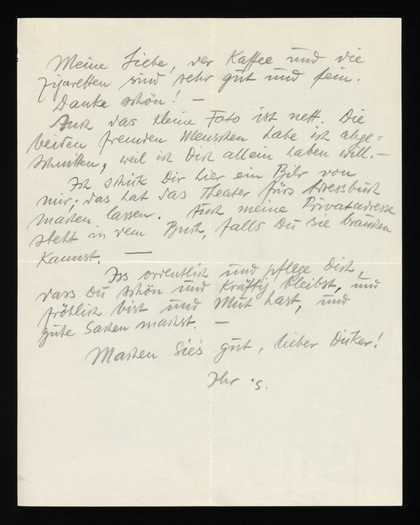 Meine Liebe, der Kaffee und die
Zigaretten sind sehr gut und fein.
Danke schön! —
Auch das kleine Foto ist nett. Die
beiden fremden Menschen habe ich abge-
schnitten, weil ich Dich allein haben will. —
Ich schicke Dir hier ein von
mir; das hat das Theater fürs Adressbuch
machen lassen. Auch meine Privatadresse
steht in dem Buch, falls Du sie brauchen
kannst. —
Iss ordentlich und pflege Dich,
dass Du schön und kräftig bleibst, und
fröhlich bist und Mut hast, und
gute Sachen machst. —
Machen Sie's gut, lieber !
Ihr S.